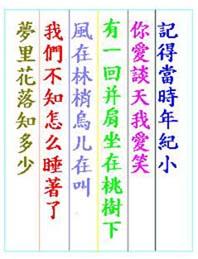 記得當時年紀小
你愛談天我愛笑
有一回并肩坐在桃樹下
風在林梢鳥儿在叫
我們不知怎么睡著了
夢里花落知多少